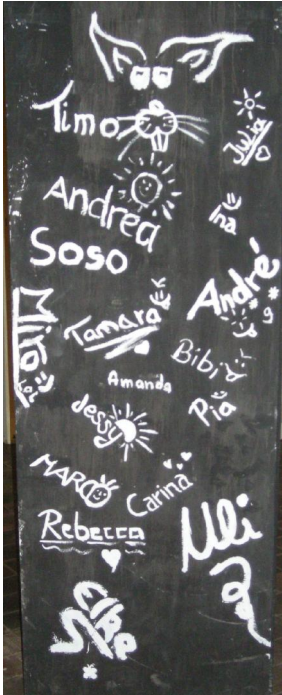 Timo
Julia
Andrea
Ina
Soso
André
Miro
Lol
Tamara
Bibi
Amanda
Jessy
Pia
MARCO
Carina
Rebecca
Uli
Elke